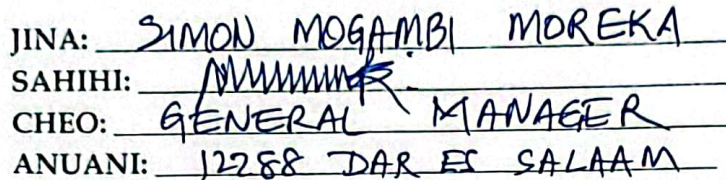 JINA: SIMON MOGAMBI MOREKA
SAHIHI:
CHEO: GENERAL MANAGER
ANUANI: 12288 DAR ES SALAAM